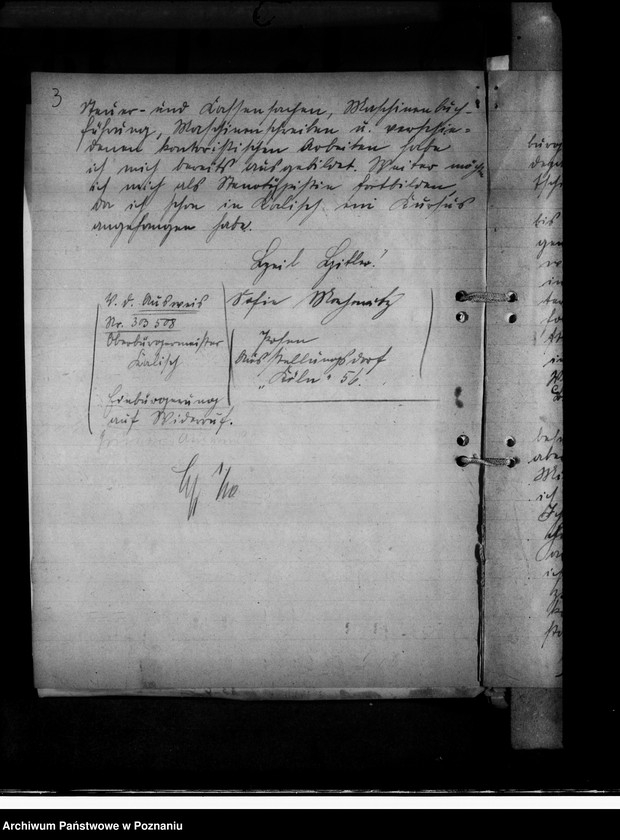 3
Steuer- und Kassensachen, Maschinenbuch-
führung, Maschinenschreiben u. verschie-
denen kontoristischen Arbeiten habe
ich mich bereits ausgebildet. Weiter möchte
ich mich als Stenotypistin fortbilden,
da ich schon in Kalisch ein Kursus
angefangen habe.
Heil Hitler!
V. d. Ausweis
Nr. 303 508
Oberbürgermeister
Kalisch
Einbürgerung
auf Widerruf.
Sofie
Posen
Ausstellungsdorf
„Köln“ 56.
Archiwum Państwowe w Poznaniu